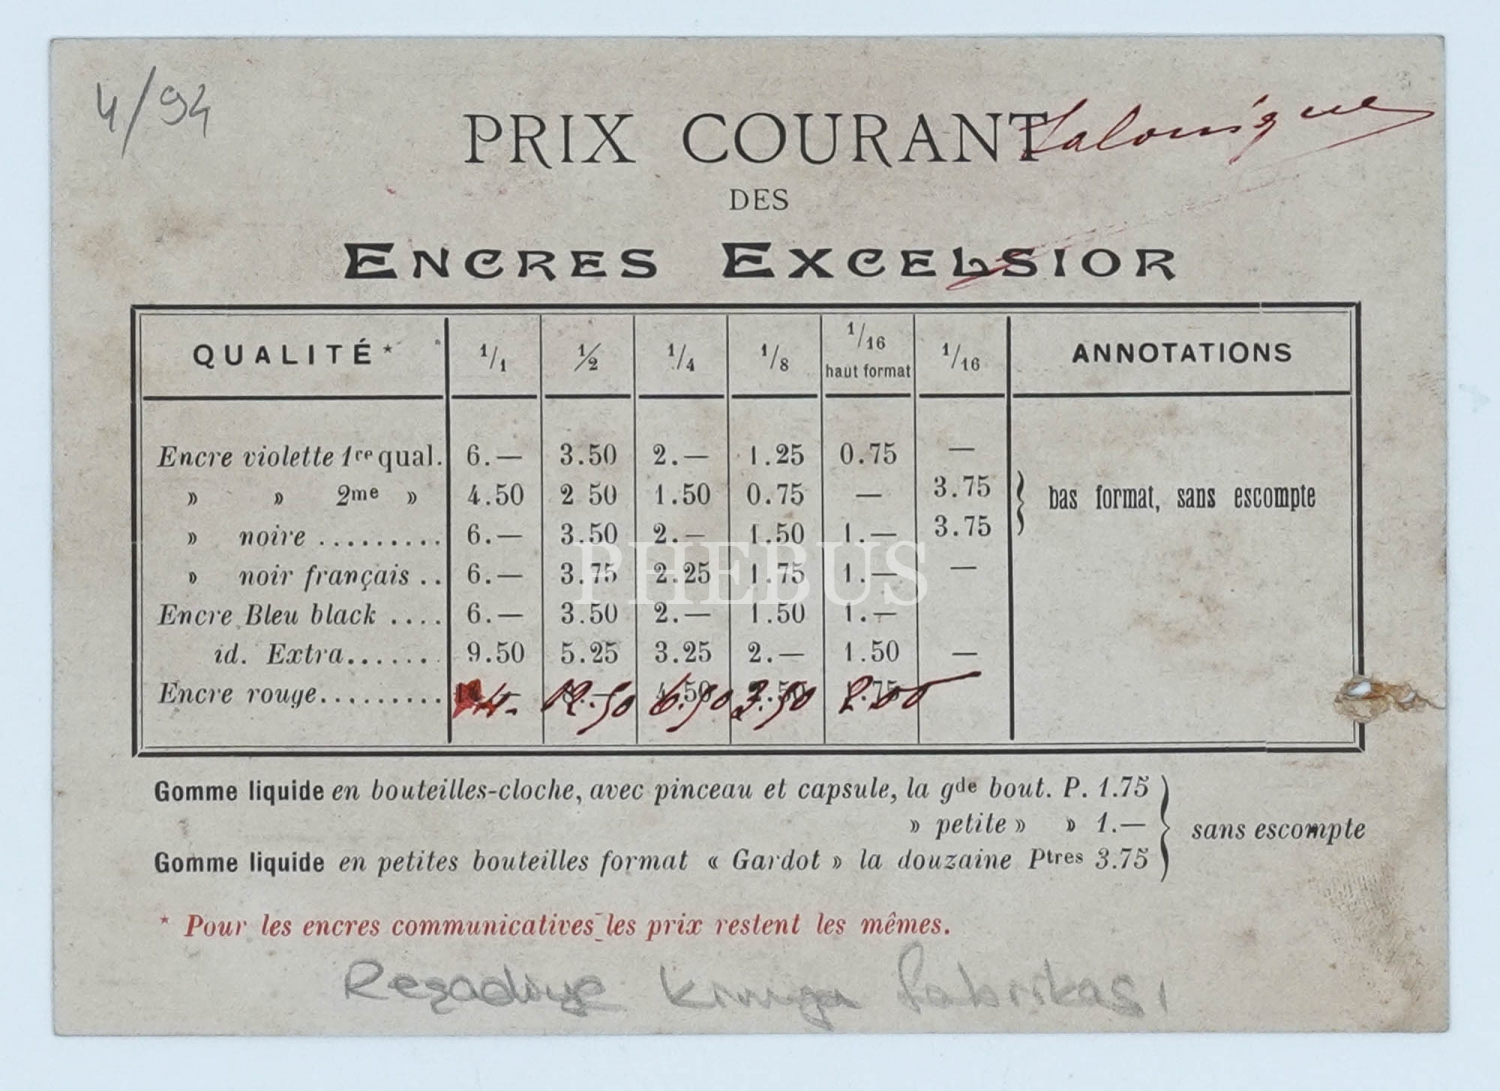 4/94
PRIX COURANT Salonique
DES
ENCRES EXCELSIOR
QUALITÉ* 1/1 1/2 1/4 1/8 1/16 haut format 1/16 ANNOTATIONS
Encre violette 1re qual. 6.— 3.50 2.— 1.25 0.75 —
» » 2me » 4.50 2 50 1.50 0.75 — 3.75 } bas format, sans escompte
» noire ......... 6.— 3.50 2.— 1.50 1.— 3.75
» noir français .. 6.— 3.75 2.25 1.75 1.— —
PHEBUS
Encre Bleu black .... 6.— 3.50 2.— 1.50 1.—
id. Extra....... 9.50 5.25 3.25 2.— 1.50 —
Encre rouge......... 14.- 12.50 6.50 3.50 2.00
Gomme liquide en bouteilles-cloche, avec pinceau et capsule, la gde bout. P. 1.75
» petite » » 1.— } sans escompte
Gomme liquide en petites bouteilles format « Gardot » la douzaine Ptres 3.75
* Pour les encres communicatives les prix restent les mêmes.
fabrikası